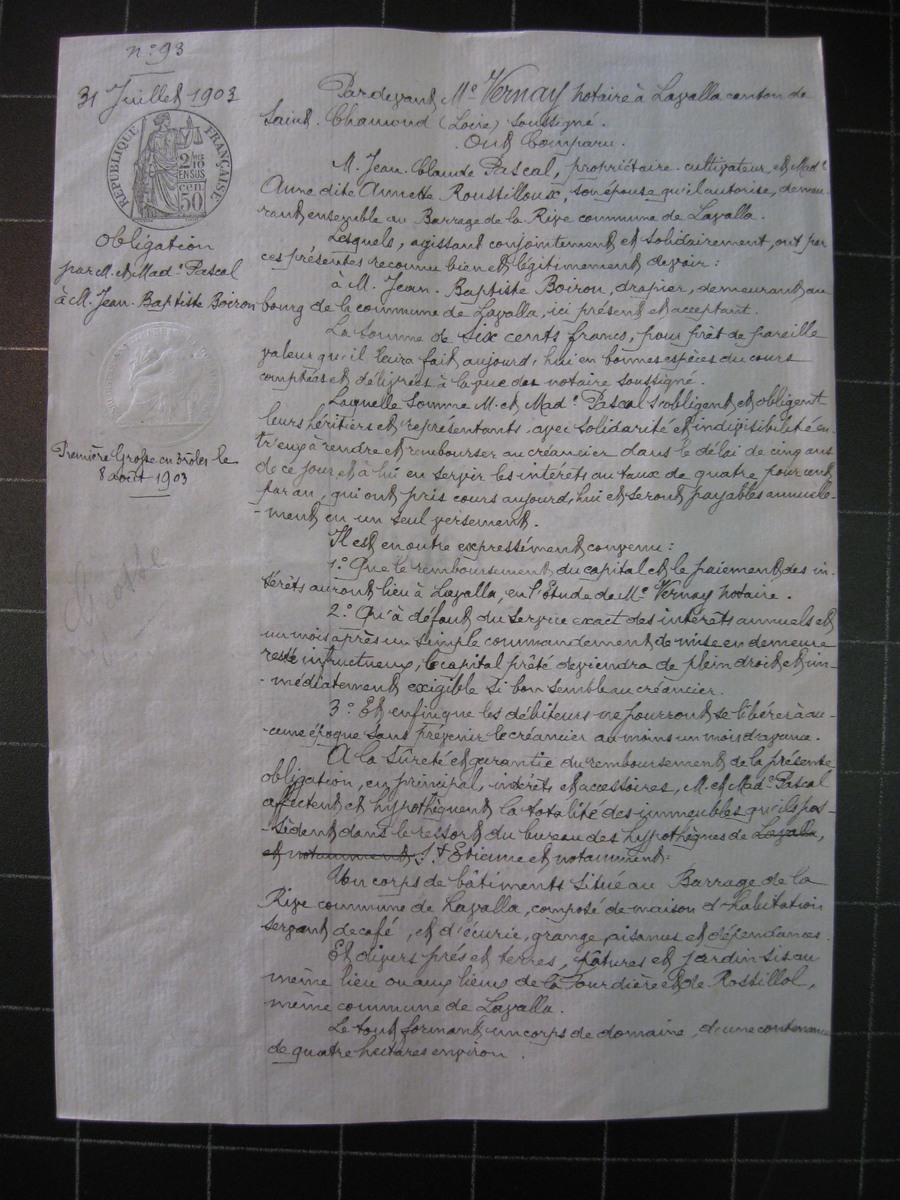 nº 93
31 Juillet 1903
RÉPUBLIQUE FRANÇAISE
2/10 EN SUS
50 cen
Obligation
par M. et Madᵉ Pascal
à M. Jean-Baptiste Boiron
Première Grosse en 3 rôles le
8 août 1903
Grosse
Pardevant Mᵉ Vernay notaire à Lavalla canton de
Saint-Chamond (Loire) soussigné.
Ont Comparu.
M. Jean-Claude Pascal, propriétaire-cultivateur, et Madᵉ
Anne dite Annette Roussilloux, son épouse qu'il autorise, demeu-
rant ensemble au Barrage de la Rive commune de Lavalla.
Lesquels, agissant conjointement et solidairement, ont par
ces présentes reconnu bien et légitimement devoir :
à M. Jean-Baptiste Boiron, drapier, demeurant au
bourg de la commune de Lavalla, ici présent et acceptant.
La somme de Six cents francs, pour prêt de pareille
valeur qu'il leur a fait aujourd'hui en bonnes espèces du cours
comptées et délivrées à la vue des notaire soussigné.
Laquelle somme M. et Madᵉ Pascal s'obligent et obligent
leurs héritiers et représentants avec solidarité et indivisibilité en-
tr'eux à rendre et rembourser au créancier dans le délai de cinq ans
de ce jour et à lui en servir les intérêts au taux de quatre pour cent
par an, qui ont pris cours aujourd'hui et seront payables annuelle-
-ment en un seul versement.
Il est en outre expressément convenu :
1º Que le remboursement du capital et le paiement des in-
térêts auront lieu à Lavalla, en l'Étude de Mᵉ Vernay notaire.
2º Qu'à défaut du service exact des intérêts annuels et
un mois après un simple commandement de mise en demeure
resté infructueux, le capital prêté deviendra de plein droit et im-
-médiatement exigible si bon semble au créancier.
3º Et enfin que les débiteurs ne pourront se libérer à au-
-cune époque sans prévenir le créancier au moins un mois d'avance.
A la sûreté et garantie du remboursement de la présente
obligation, en principal, intérêts et accessoires, M. et Madᵉ Pascal
affectent et hypothèquent la totalité des immeubles qu'ils pos-
-sèdent dans le ressort du bureau des hypothèques de Lavalla,
et notamment : St Etienne et notamment :
Un corps de bâtiments situé au Barrage de la
Rive commune de Lavalla, composé de maison d'habitation
servant de café, et d'écurie, grange, aisances et dépendances.
Et divers prés et terres, pâtures et jardin sis au
même lieu ou aux lieux de la Sourdière et de Rossillol,
même commune de Lavalla.
Le tout formant un corps de domaine, d'une contenance
de quatre hectares environ.